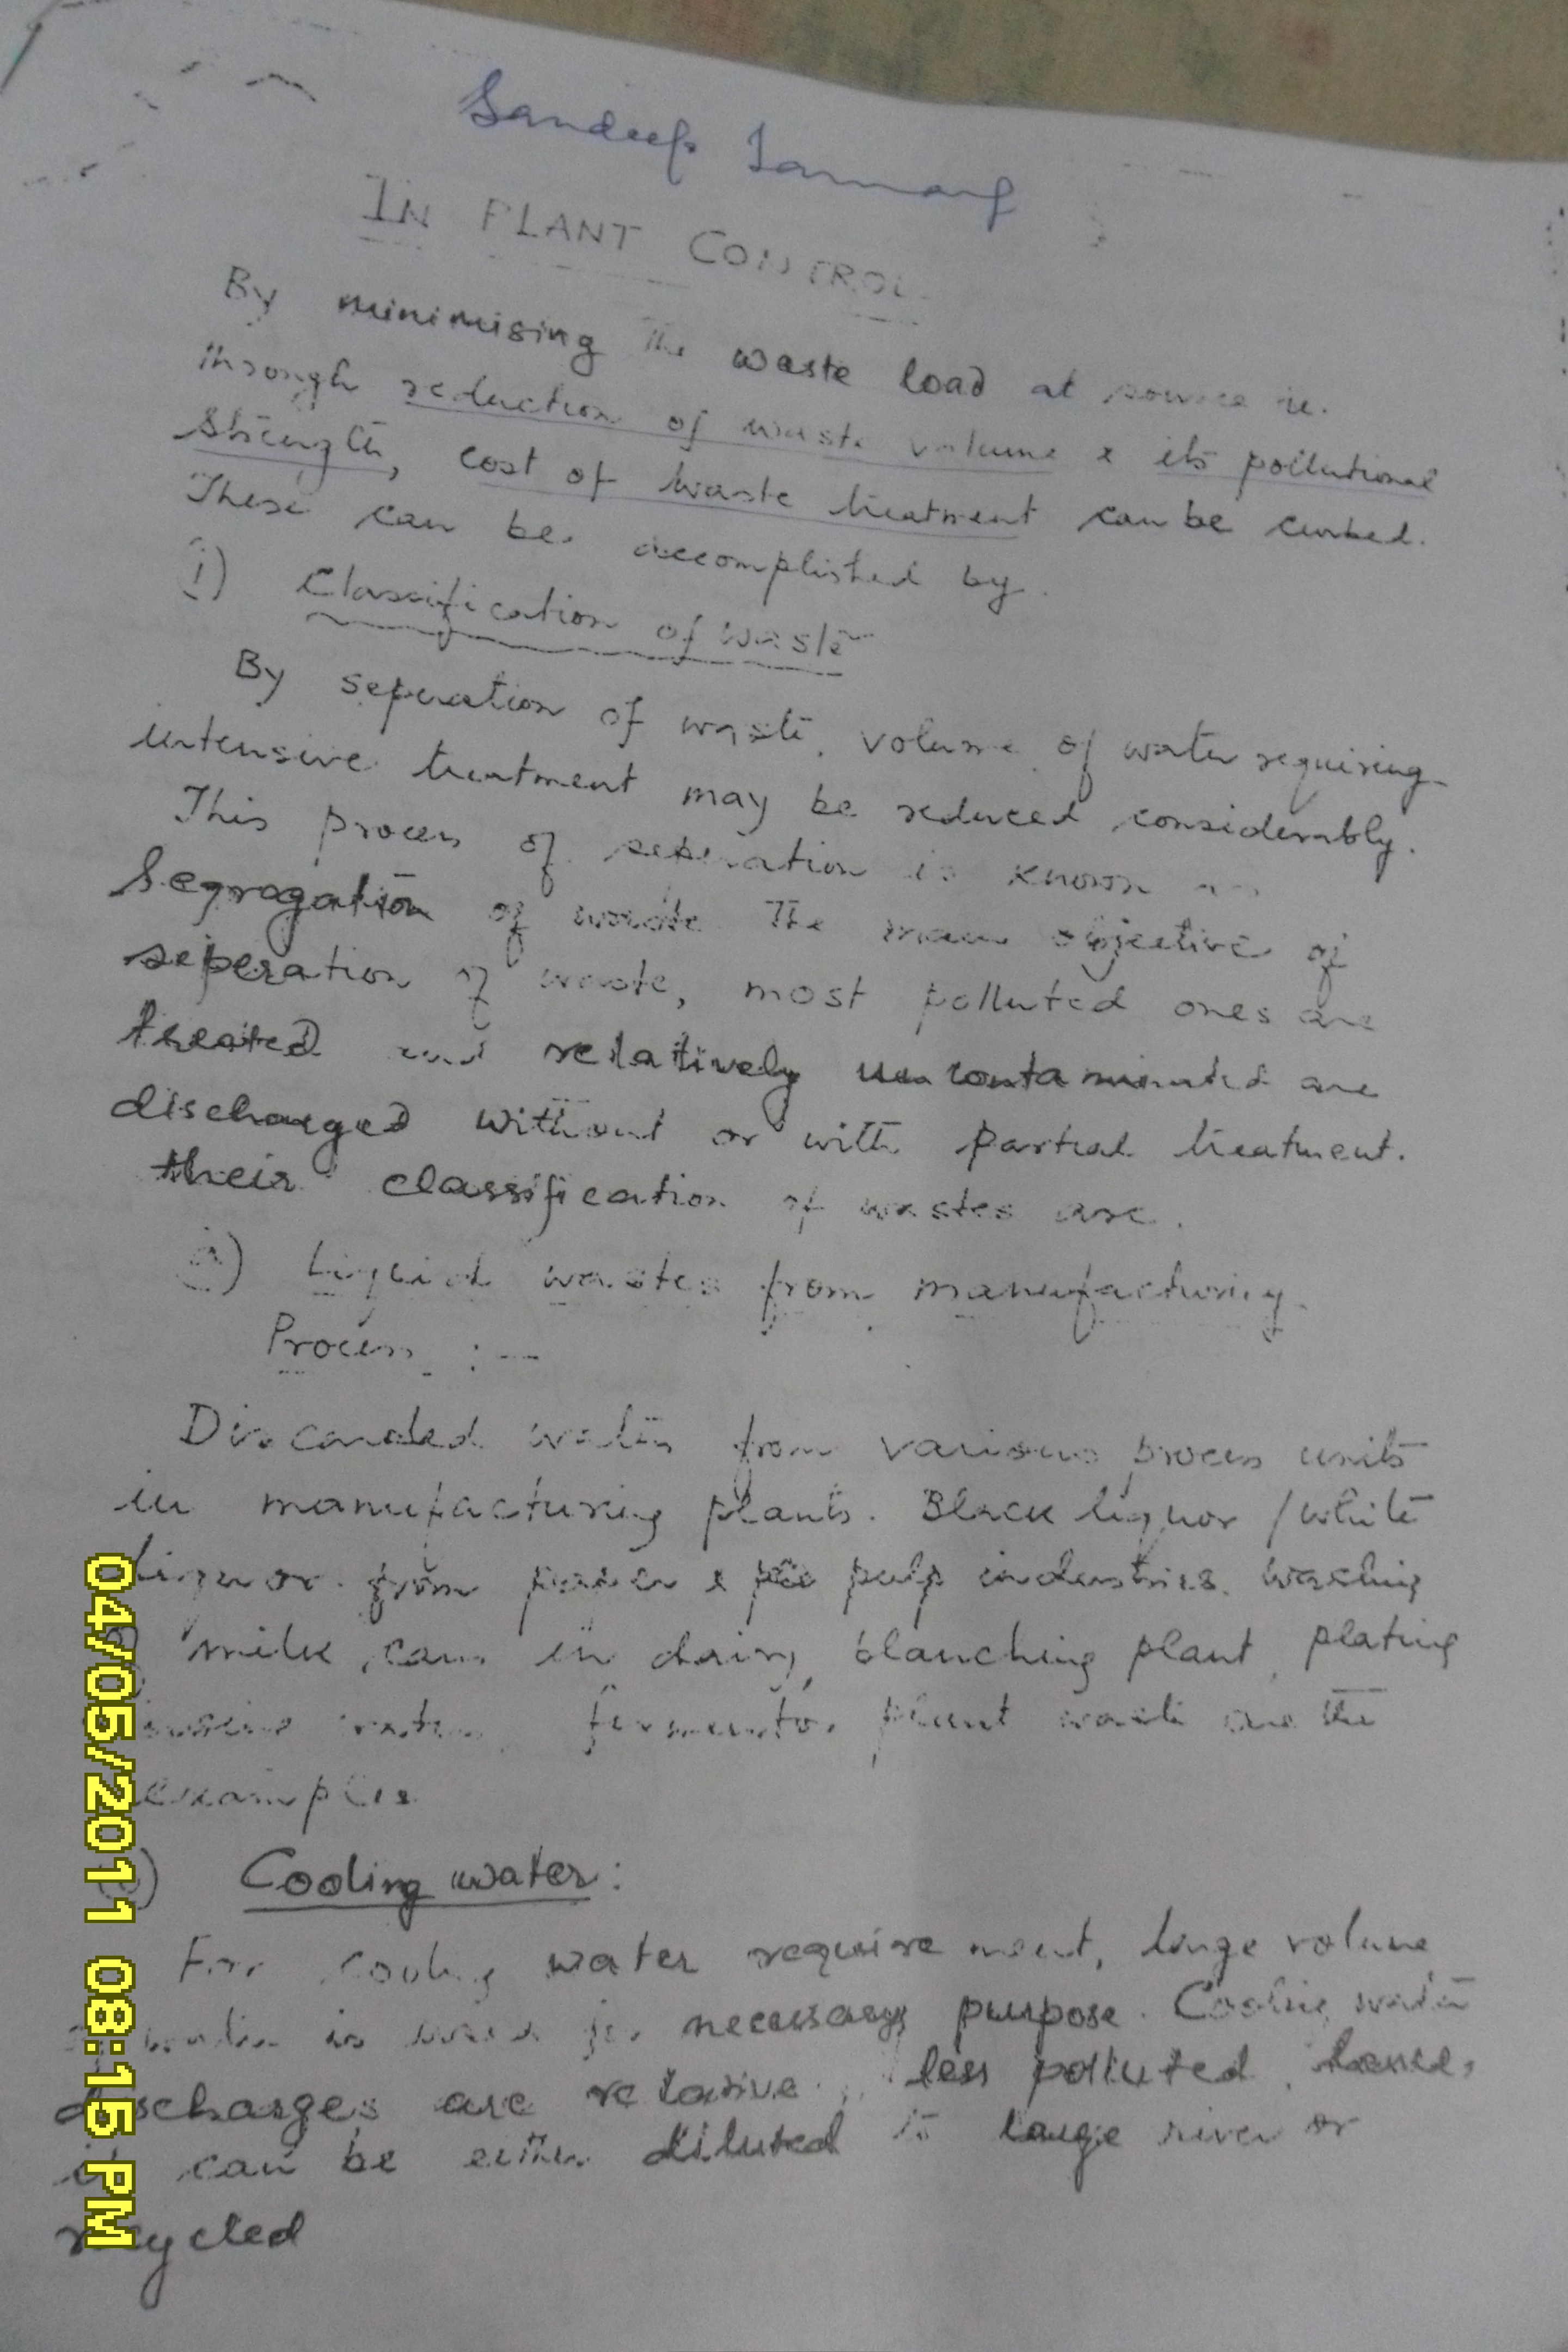 Sandeep
IN PLANT CONTROL
By minimising the waste load at source ie.
through reduction of waste volume & its pollutional
strength, cost of waste treatment can be curbed.
These can be accomplished by.
i) Classification of waste
By seperation of waste, volume of water requiring
intensive treatment may be reduced considerably.
This process of seperation is known as
Segragation of waste. The main objective of
seperation of waste, most polluted ones are
treated and relatively uncontaminated are
discharged without or with partial treatment.
their classification of wastes are.
a) Liquid wastes from manufacturing
Process :-
Discarded water from various process units
in manufacturing plants. Black liquor / white
liquor from paper & pulp industries. washing
milk cans in dairy, blanching plant, plating
fermentor plant waste are the
examples
Cooling water:
For cooling water requirement, large volume
water is used for necessary purpose. Cooling water
discharges are relative less polluted, hence,
it can be either diluted to large river or
recycled
04/05/2011 08:15 PM